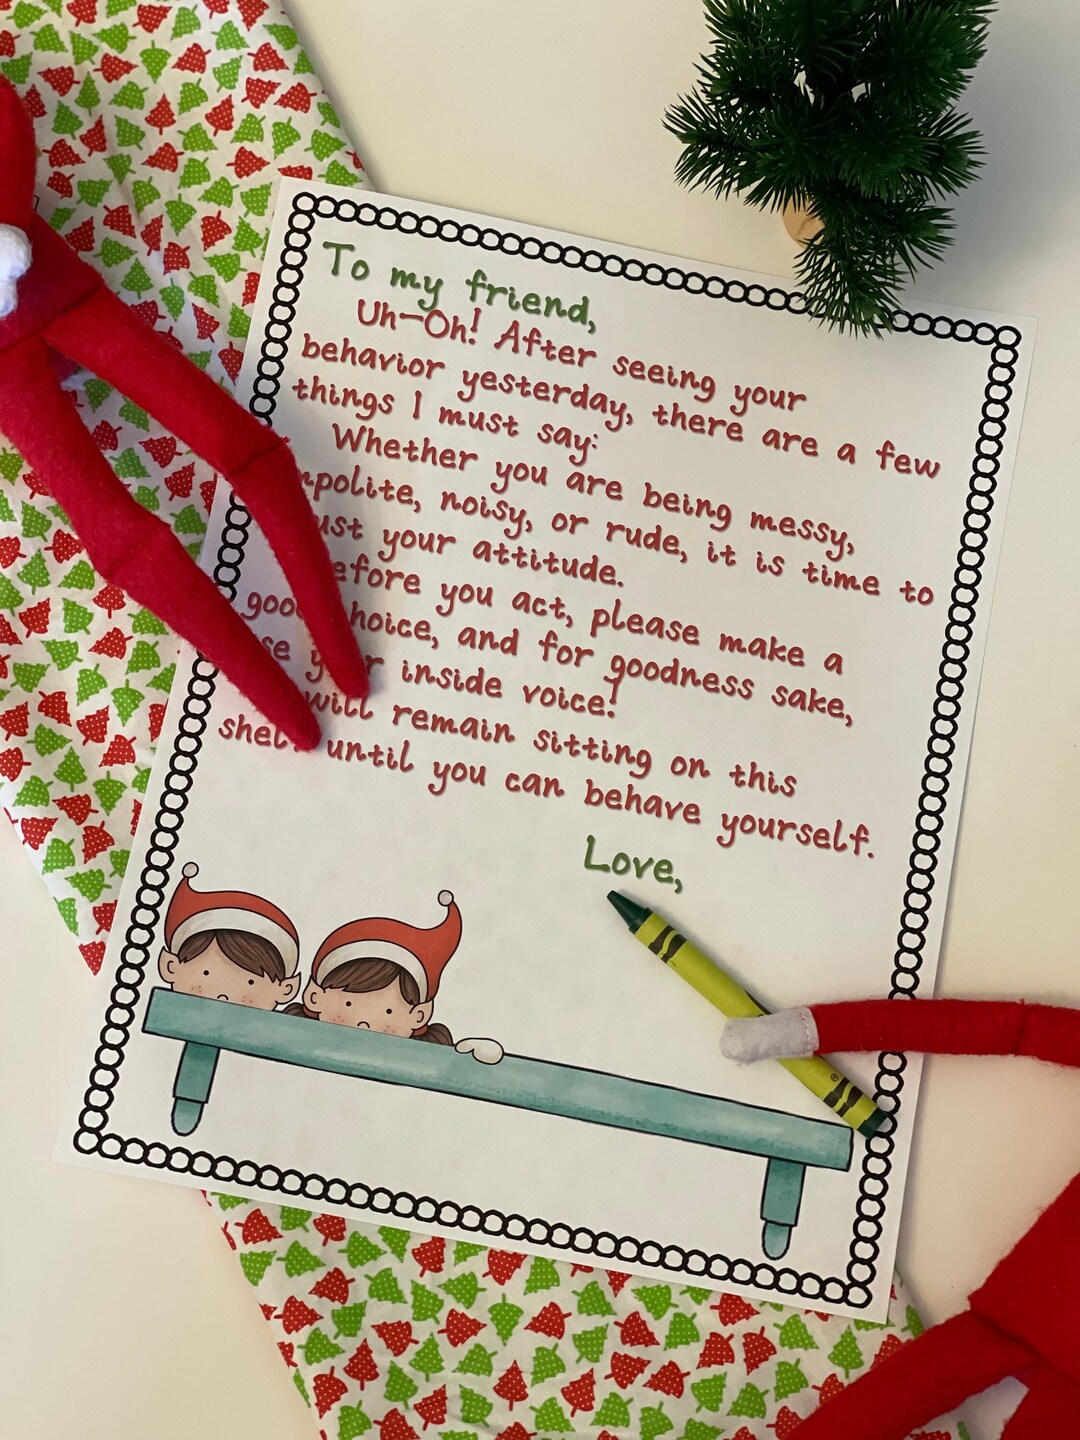 To my friend,
Uh-Oh! After seeing your
behavior yesterday, there are a few
things I must say:
Whether you are being messy,
mpolite, noisy, or rude, it is time to
ust your attitude.
efore you act, please make a
good choice, and for goodness sake,
se your inside voice!
will remain sitting on this
shelf until you can behave yourself.
Love,